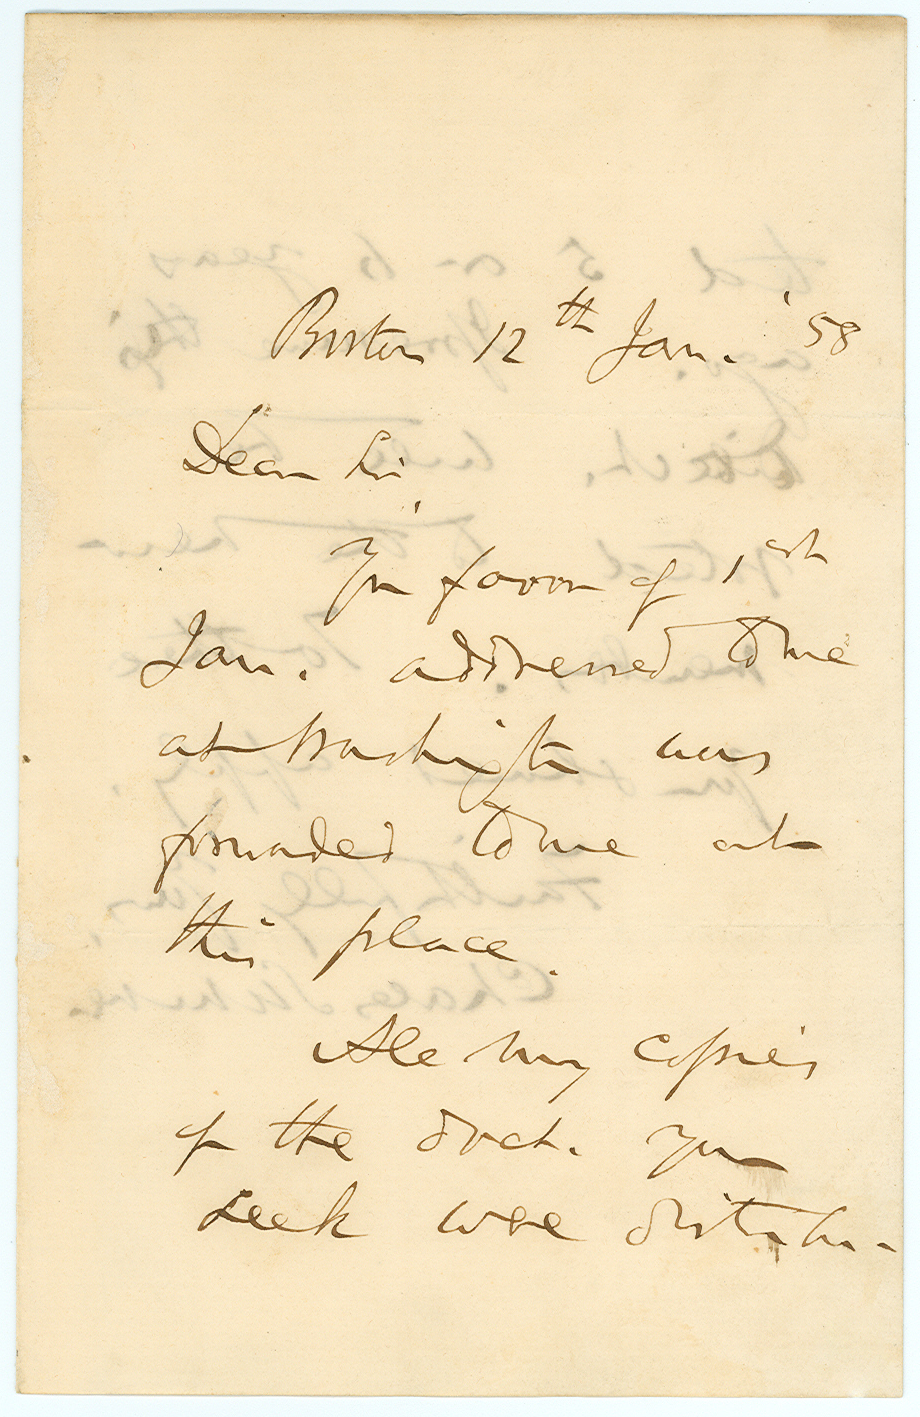 Boston 12th Jan. '58
Dear Sir,
Yr favor of 1st
Jan. addressed to me
at Washington was
forwarded to me at
this place.
All my copies
of the doct. you
seek were distribu-